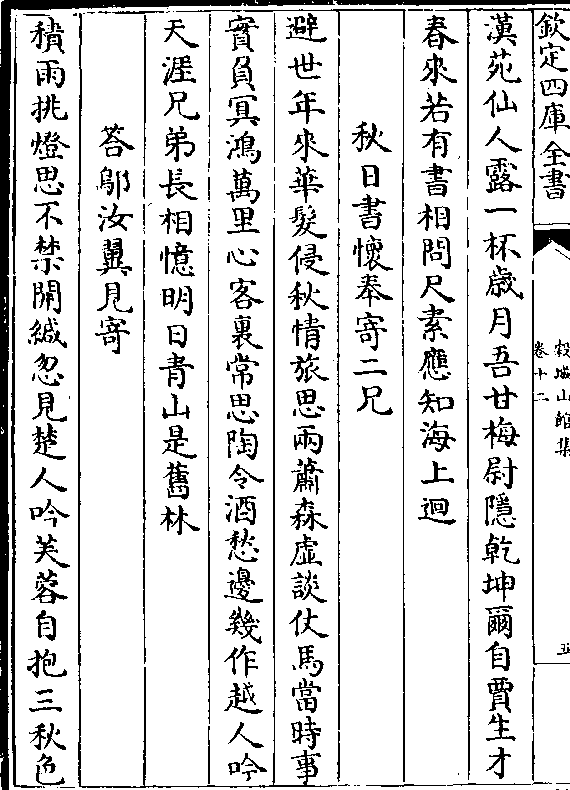 欽定四庫全書
穀城山館集
卷十二
五
漢苑仙人露一杯歲月吾甘梅尉隱乾坤爾自賈生才
春來若有書相問尺素應知海上迴
秋日書懷奉寄二兄
避世年來華髮侵秋情旅思兩蕭森虛談仗馬當時事
實負冥鴻萬里心客裏常思陶令酒愁邊幾作越人吟
天涯兄弟長相憶明日青山是舊林
荅鄔汝翼見寄
積雨挑燈思不禁開緘忽見楚人吟芙蓉自抱三秋色